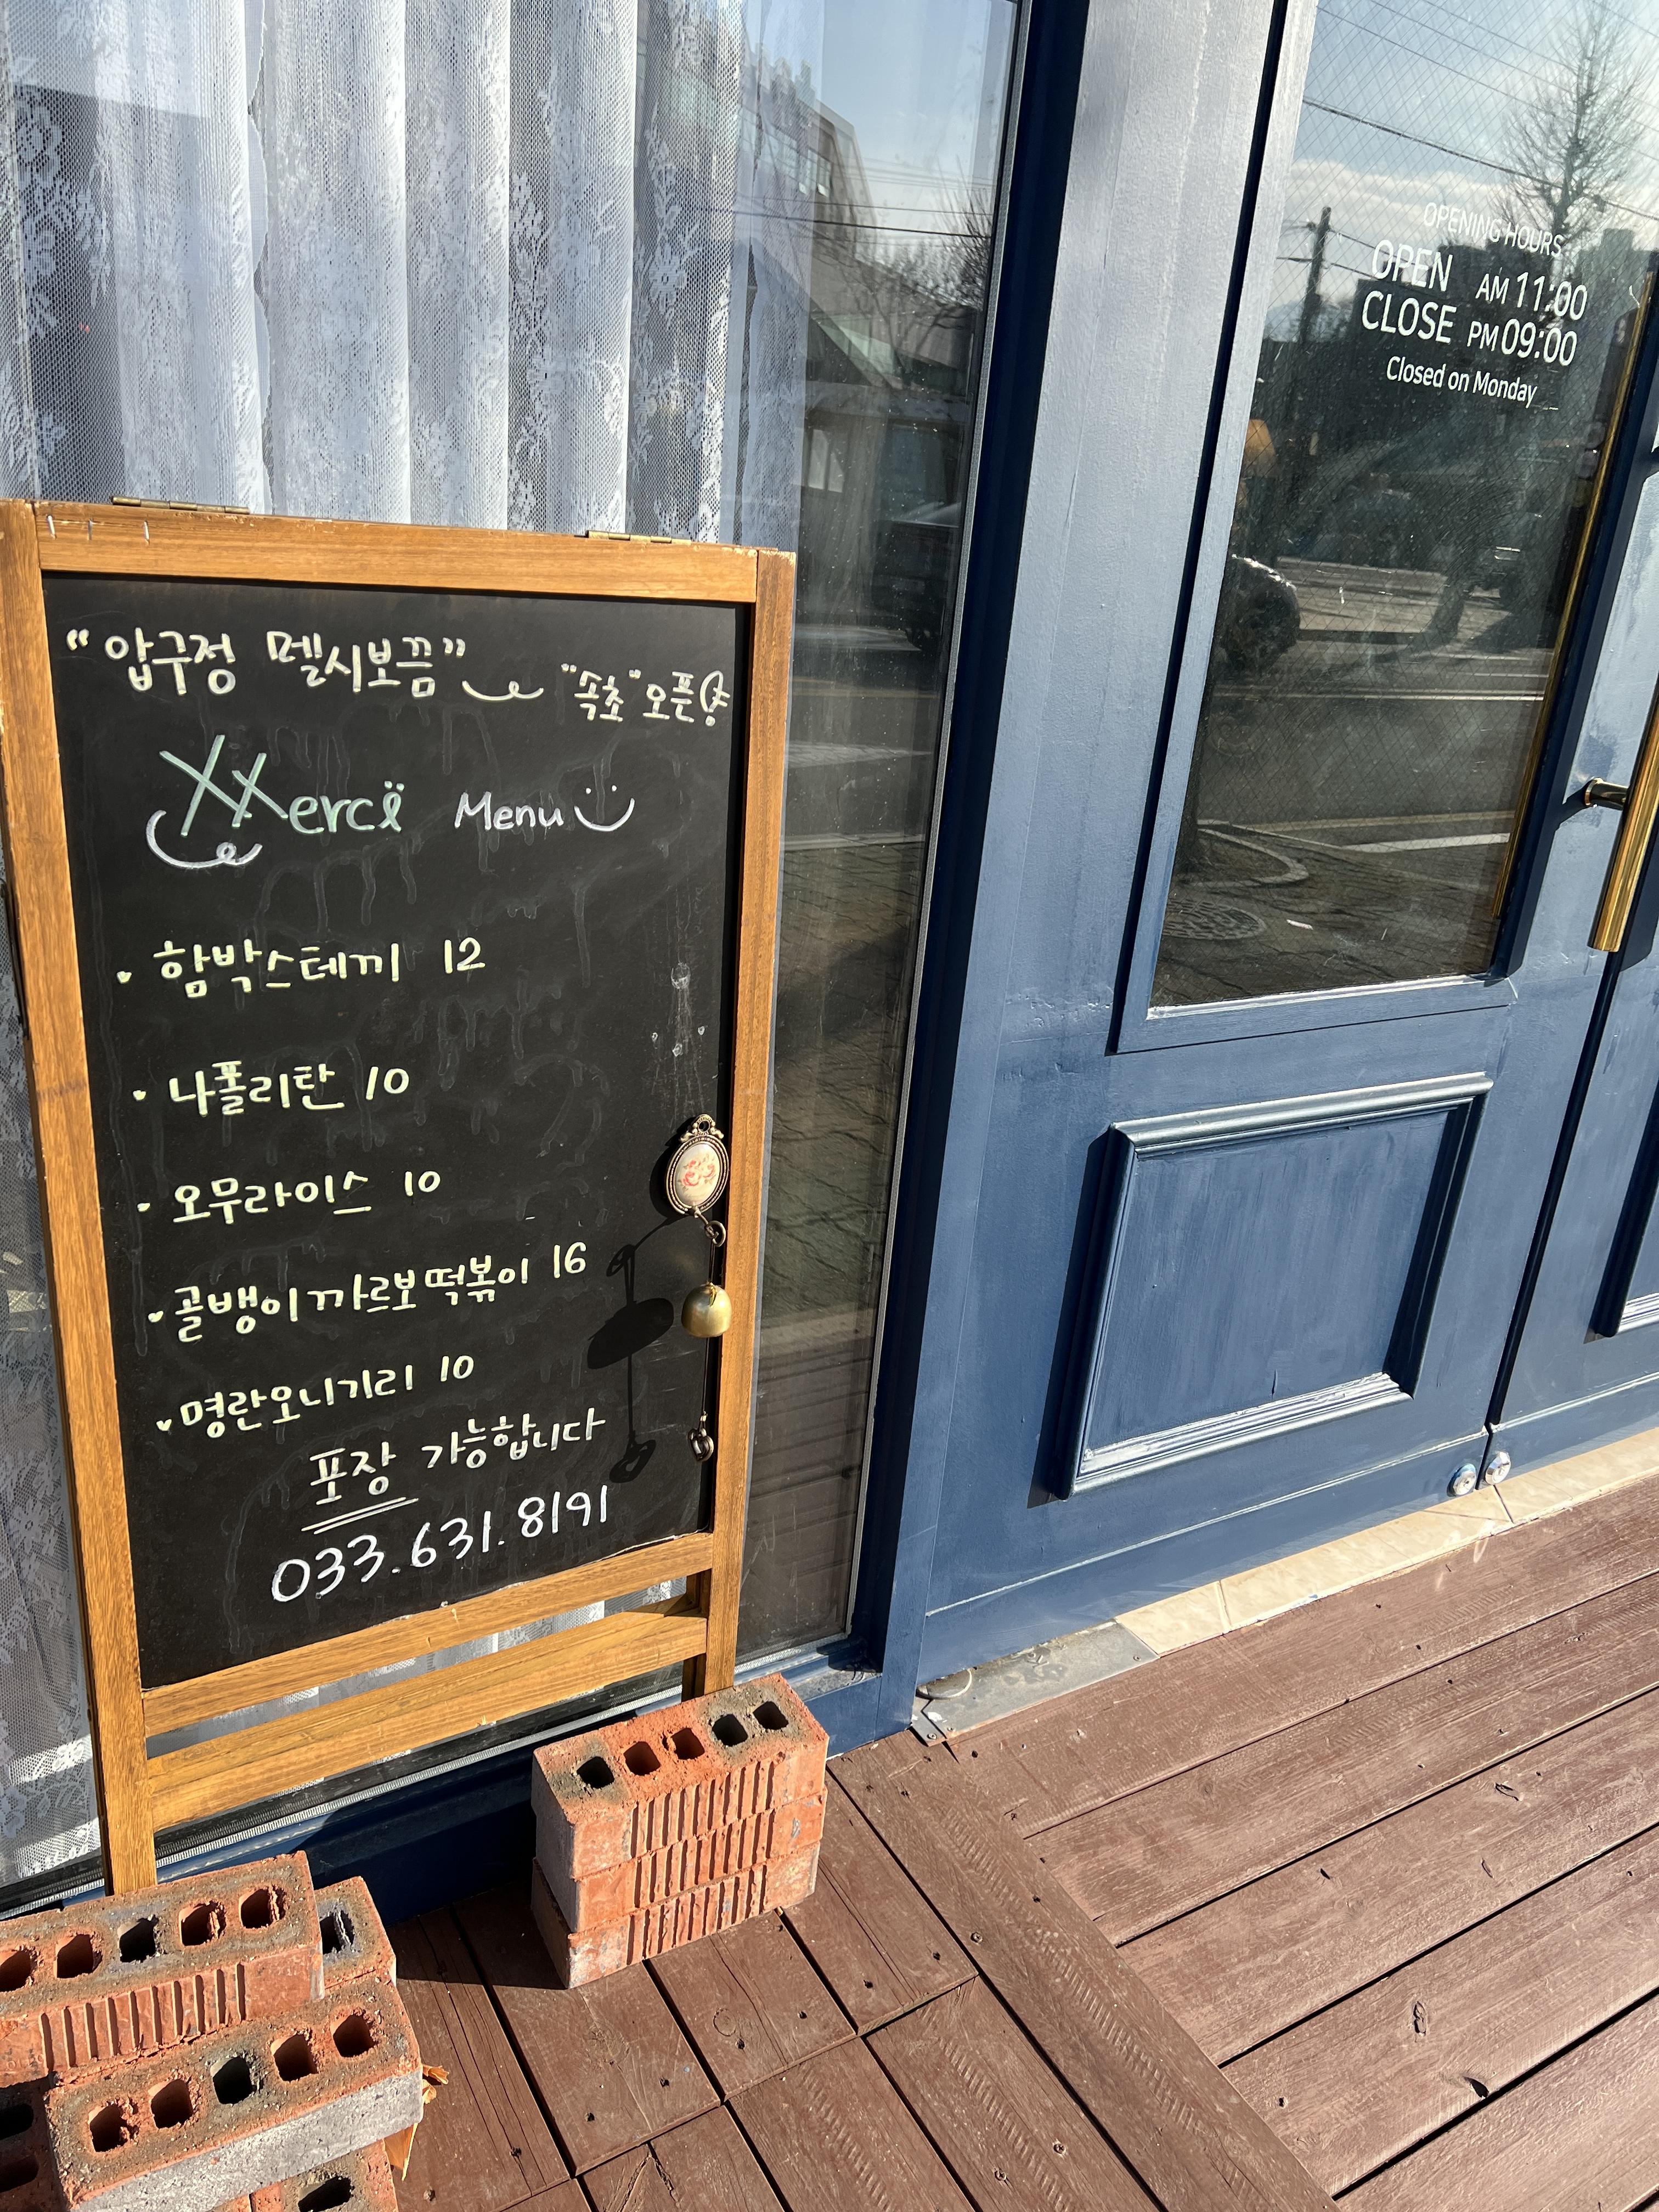 "압구정 멜시보끔"
"속초" 오픈
Merci Menu
· 함박스테끼 12
· 나폴리탄 10
· 오무라이스 10
· 골뱅이까르보떡볶이 16
· 명란오니기리 10
포장 가능합니다
033.631.8191
OPENING HOURS
OPEN AM 11:00
CLOSE PM 09:00
Closed on Monday